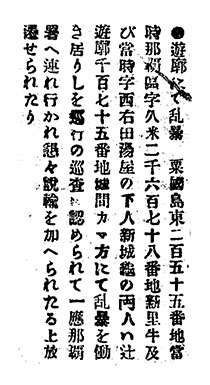 ●遊廓にて乱暴　粟國島東二百五十五番地當
時那覇區字久米二千六百七十八番地新里牛及
び當時字西右田湯屋の下人新城龜の両人ハ辻
遊廓千百七十五番地 間カマ方にて乱暴を働
き居りしを 行の巡査 認められて一應那覇
署へ連れ行かれ懇々説諭を加へられたる上放
還せられたり